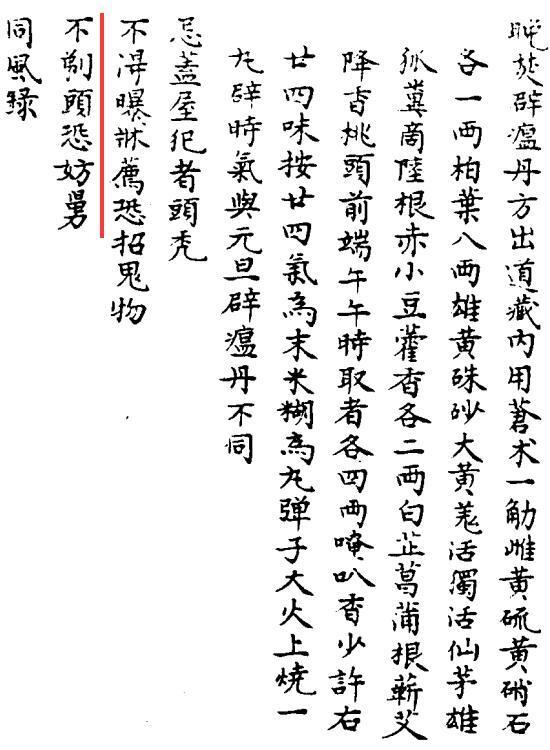 晚焚辟瘟丹方出道藏內用蒼朮一觔雌黄硫黄硝石
各一两柏葉八两雄黄硃砂大黄羌活獨活仙茅雄
狐糞商陸根赤小豆藿香各二两白芷菖蒲根蘄艾
降香桃頭前端午午時取者各四两唵叭香少許右
廿四味按廿四氣為末米糊為丸弹子大火上燒一
丸辟時氣與元旦辟瘟丹不同
忌蓋屋犯者頭秃
不淂曝牀薦恐招鬼物
不剃頭恐妨舅
同風録